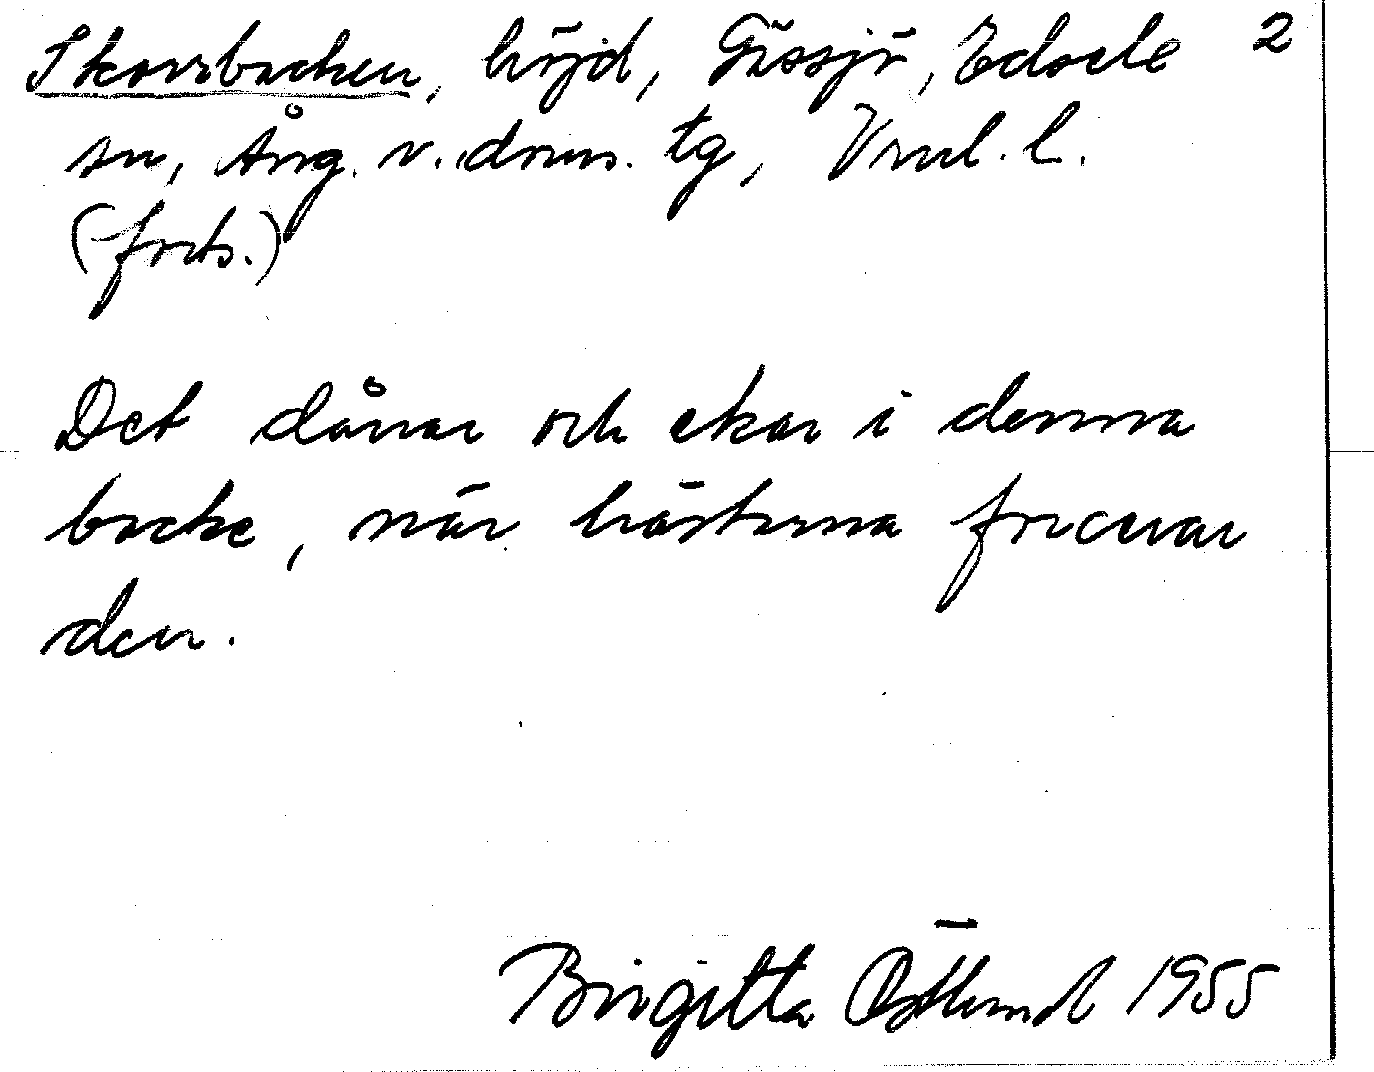 Skorrbacken, höjd, Gissjö, Edsele 2
sn, Ång. v. doms. tg, Vml. l.
(forts.)
Det dånar och ekar i denna
backe, när hästarna frecuar
den.
Birgitta Östlund 1955